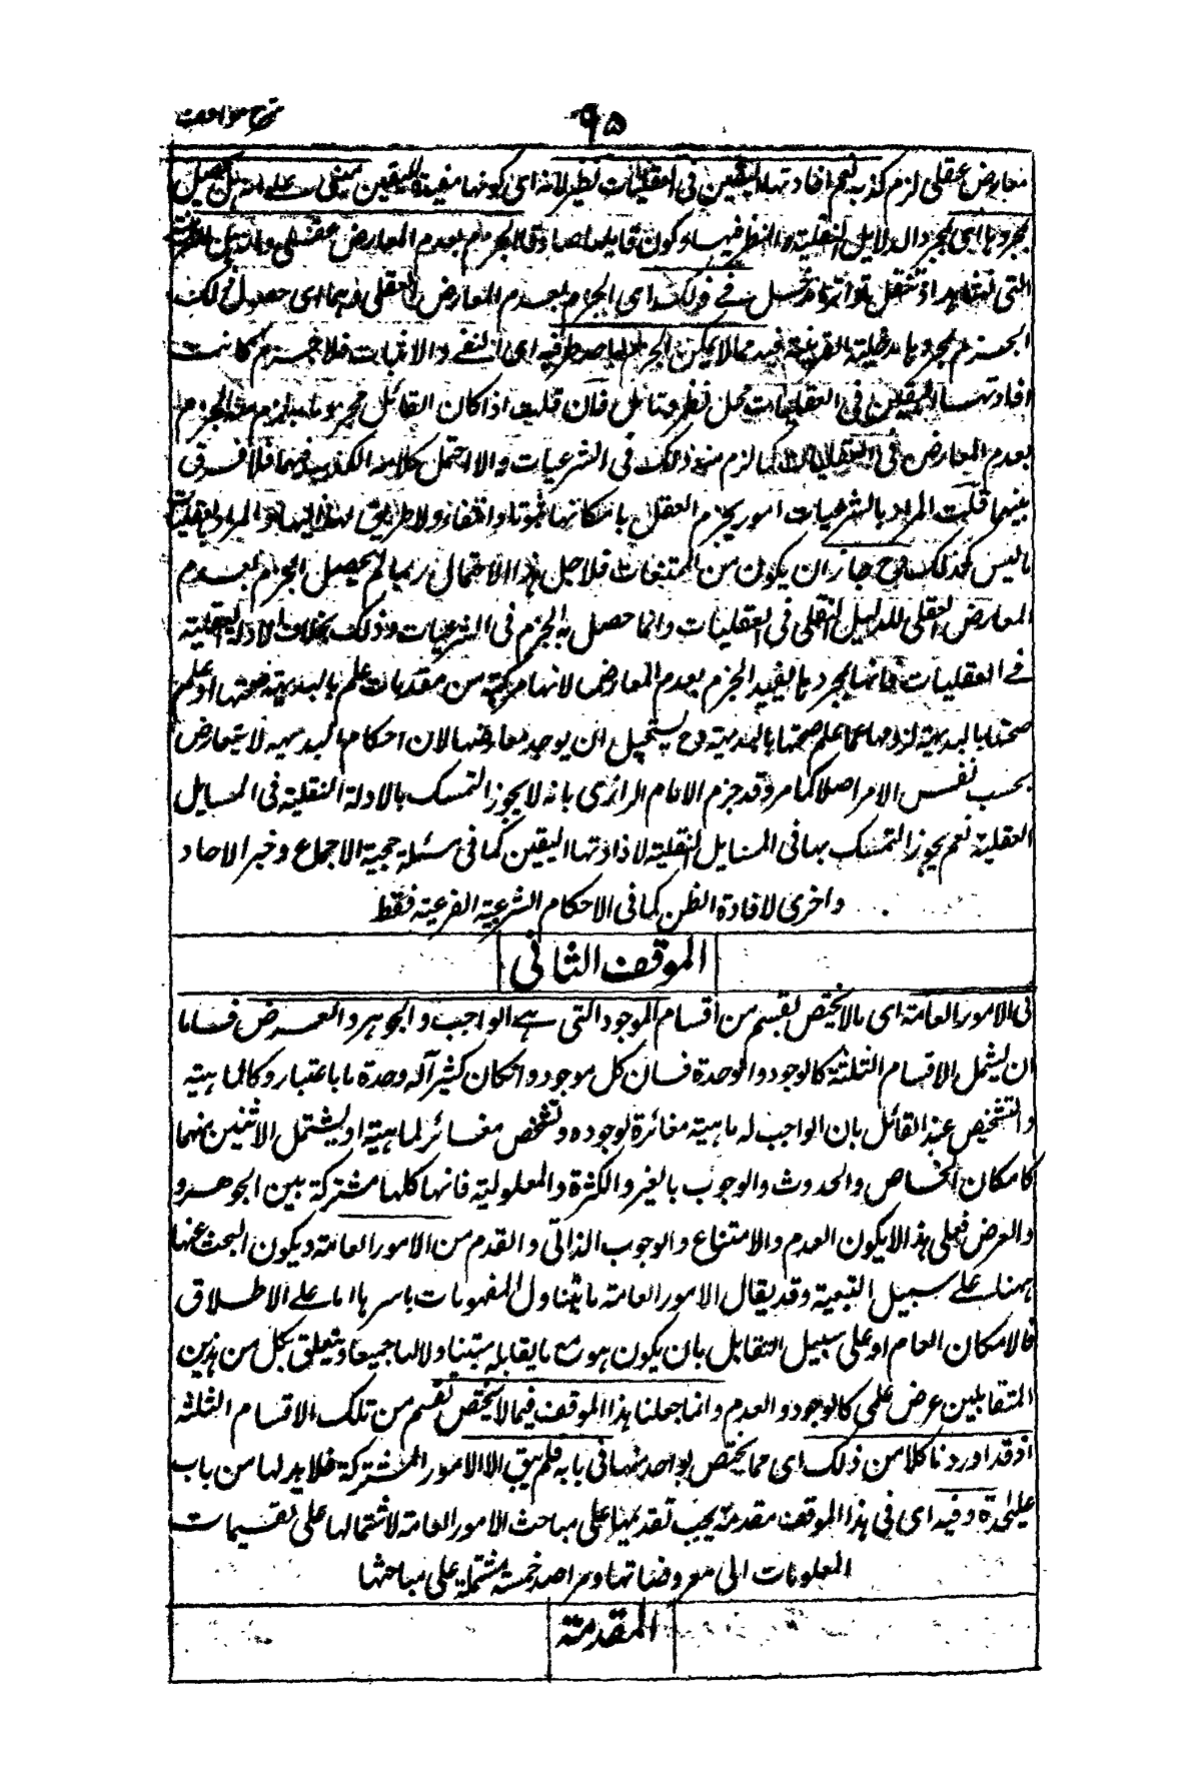 شرح مواقف
٩٥
معارض عقلى لزم كذبه نعم افادتها اليقين فى العقليات نظر لانه اى كونها مفيدة لليقين مبنى على انه هل يحصل
بمجردها اى بمجرد الدلايل النقلية والنظر فيها وكون قايلها صادقا الجزم بعدم المعارض العقلى وانه هل للقرينة
التى تشاهد او تنقل تواترا مدخل فى ذلك اى الجزم بعدم المعارض العقلى وهما اى حصول ذلك
الجزم بمجردها ومدخلية القرينة فيه مما لا يمكن الجزم باحد طرفيه اى النفى والاثبات فلا جرم كانت
افادتها اليقين فى العقليات محل نظر وتامل فان قلت اذا كان القائل مجزوما يلزم منه الجزم
بعدم المعارض فى العقليات كما لزم منه ذلك فى الشرعيات والا احتمل كلامه الكذب فيهما فلا فرق
بينهما قلت المراد بالشرعيات امور يجزم العقل بامكانها ثبوتا وانتفاء ولا طريق له اليها والمراد بالعقليات
ما ليس كذلك وح جاز ان يكون من الممتنعات فلاجل هذا الاحتمال ربما لم يحصل الجزم بعدم
المعارض العقلى للدليل النقلى فى العقليات وانما حصل به الجزم فى الشرعيات وذلك بخلاف الادلة العقلية
فى العقليات فانها بمجردها يفيد الجزم بعدم المعارض لانها مركبة من مقدمات علم بالبديهة صحتها او علم
صحتها بالبديهة لزومها مما علم صحتها بالبديهة وح يستحيل ان يوجد معارضها لان احكام البديهية لا يتعارض
بحسب نفس الامر اصلا كما مر وقد جزم الامام الرازى بانه لا يجوز التمسك بالادلة النقلية فى المسايل
العقلية نعم يجوز التمسك بها فى المسايل النقلية لافادتها اليقين كما فى مسئلة حجية الاجماع وخبر الاحاد
واخرى لافادة الظن كما فى الاحكام الشرعية الفرعية فقط
الموقف الثانى
فى الامور العامة اى ما لا يختص بقسم من اقسام الموجود التى هى الواجب والجوهر والعرض فاما
ان يشمل الاقسام الثلثة كالوجود والوحدة فان كل موجود وان كان كثيرا له وحدة ما باعتبار وكالماهية
والتشخص عند القائل بان الواجب له ماهية مغائرة لوجوده وتشخص مغائر لماهيته او يشتمل الاثنين منهما
كامكان الخاص والحدوث والوجوب بالغير والكثرة والمعلولية فانها كلها مشتركة بين الجوهر و
والعرض فعلى هذا لا يكون العدم والامتناع والوجوب الذاتى والقدم من الامور العامة ويكون البحث عنها
ههنا على سبيل التبعية وقد يقال الامور العامة ما يتناول المفهومات باسرها اما على الاطلاق
فالامكان العام او على سبيل التقابل بان يكون هو مع ما يقابله متناولا لها جميعا ويتعلق بكل من هذين
المتقابلين غرض علمى كالوجود والعدم وانما جعلنا هذا الموقف فيما لا يختص بقسم من تلك الاقسام الثلثة
اذ قد اوردنا كلا من ذلك اى مما يختص بواحد منها فى بابه فلم يبق الا الامور المشتركة فلا بد لها من باب
عليحدة وفيه اى فى هذا الموقف مقدمة يجب تقديمها على مباحث الامور العامة لاشتمالها على تقسيمات
المعلومات الى معروضاتها ومراصد خمسة مشتملة على مباحثها
المقدمة